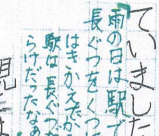 ていました
「雨の日は駅で
長ぐつをくつに
はきかえてか
駅は長ぐつだ
らけだったなあ